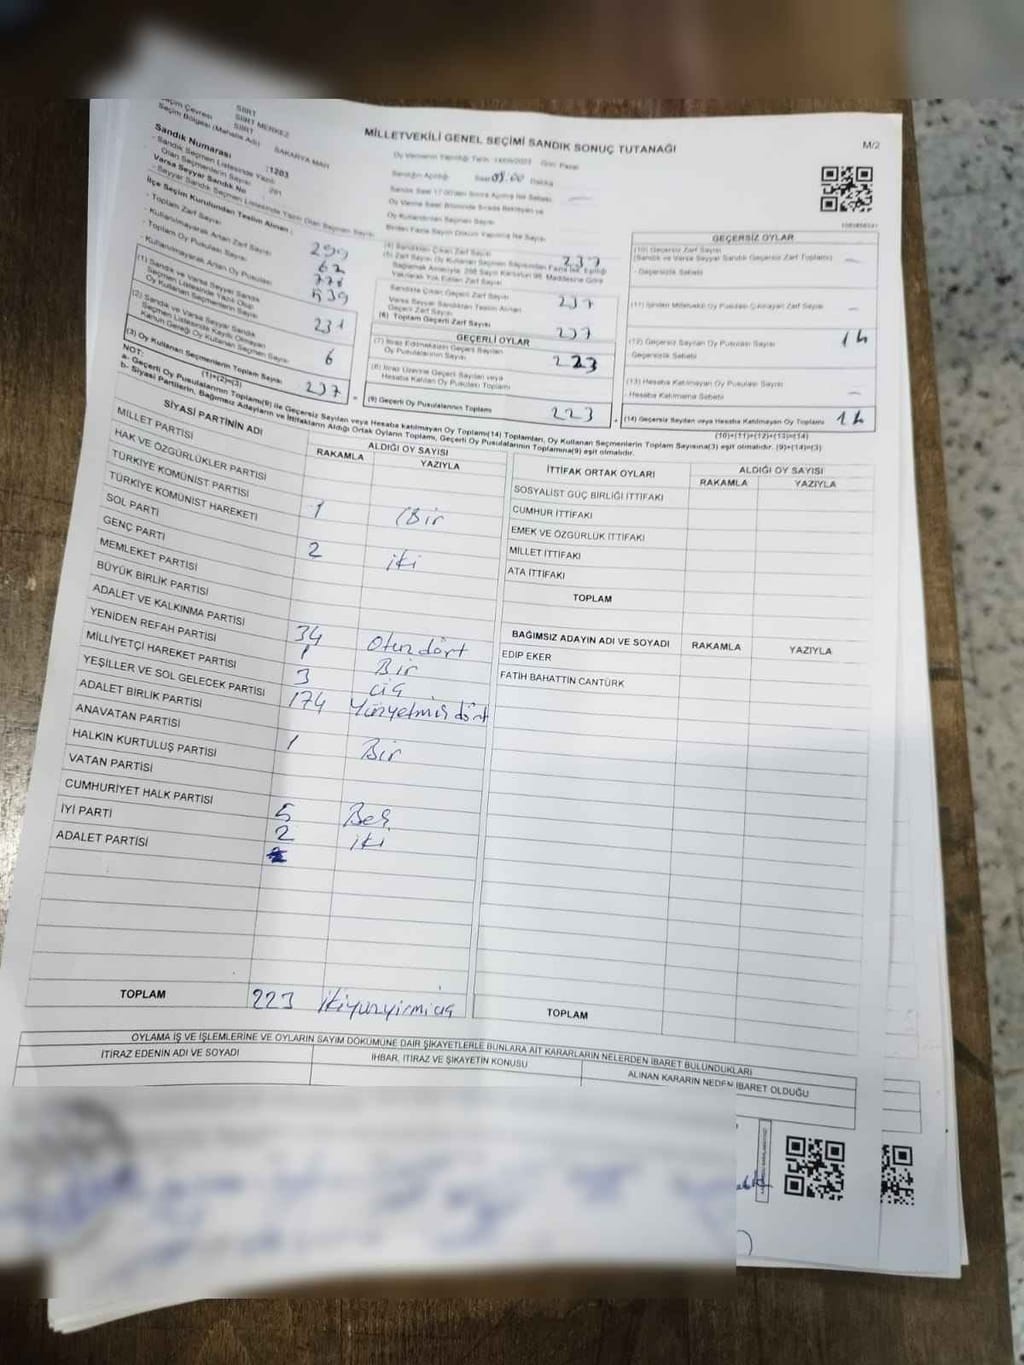 SİİRT
SİİRT MERKEZ
SİİRT
Seçim Çevresi
Seçim Bölgesi (Mahalle Adı) : SAKARYA MAH
Sandık Numarası : 1203
MİLLETVEKİLİ GENEL SEÇİMİ SANDIK SONUÇ TUTANAĞI
M/2
- Sandık Seçmen Listesinde Yazılı Olan Seçmenlerin Sayısı : 291
Varsa Seyyar Sandık No
İlçe Seçim Kurulundan Teslim Alınan :
- Toplam Zarf Sayısı 299
- Kullanılmayarak Artan Zarf Sayısı 62
- Toplam Oy Pusulası Sayısı
- Kullanılmayarak Artan Oy Pusulası 539
(1) Sandık ve Varsa Seyyar Sandık Seçmen Listesinde Yazılı Olan Oy Kullanan Seçmenlerin Sayısı 231
(2) Sandık ve Varsa Seyyar Sandık Seçmen Listesinde Kayıtlı Olmayan Kanun Gereği Oy Kullanan Seçmen Sayısı 6
(3) Oy Kullanan Seçmenlerin Toplam Sayısı (1)+(2)=(3) 237
Saat 08.00 Dakika
(4) Sandıktan Çıkan Zarf Sayısı 237
Sandıkta Çıkan Geçerli Zarf Sayısı 237
Varsa Seyyar Sandıktan Teslim Alınan Geçerli Zarf Sayısı
(6) Toplam Geçerli Zarf Sayısı 237
GEÇERLİ OYLAR
(7) İtiraz Edilmeksizin Geçerli Sayılan Oy Pusulalarının Sayısı 223
(8) İtiraz Üzerine Geçerli Sayılan veya Hesaba Katılan Oy Pusulası Toplamı
(9) Geçerli Oy Pusulalarının Toplamı 223
GEÇERSİZ OYLAR
(10) Geçersiz Zarf Sayısı
(Sandık ve Varsa Seyyar Sandık Geçersiz Zarf Toplamı)
- Geçersizlik Sebebi
(11) İçinden Milletvekili Oy Pusulası Çıkmayan Zarf Sayısı
(12) Geçersiz Sayılan Oy Pusulası Sayısı 14
Geçersizlik Sebebi
(13) Hesaba Katılmayan Oy Pusulası Sayısı
- Hesaba Katılmama Sebebi
(14) Geçersiz Sayılan veya Hesaba Katılmayan Oy Pusulası Toplamı 14
(10)+(11)+(12)+(13)=(14)
NOT:
a- Geçerli Oy Pusulalarının Toplamı(9) ile Geçersiz Sayılan veya Hesaba Katılmayan Oy Toplamı(14) Toplamları, Oy Kullanan Seçmenlerin Toplam Sayısına(3) eşit olmalıdır. (9)+(14)=(3)
b- Siyasi Partilerin, Bağımsız Adayların ve İttifakların Aldığı Ortak Oyların Toplamı, Geçerli Oy Pusulalarının Toplamına(9) eşit olmalıdır.
SİYASİ PARTİNİN ADI
ALDIĞI OY SAYISI
RAKAMLA YAZIYLA
MİLLET PARTİSİ
HAK VE ÖZGÜRLÜKLER PARTİSİ
TÜRKİYE KOMÜNİST PARTİSİ
TÜRKİYE KOMÜNİST HAREKETİ 1 Bir
SOL PARTİ
GENÇ PARTİ 2 iki
MEMLEKET PARTİSİ
BÜYÜK BİRLİK PARTİSİ
ADALET VE KALKINMA PARTİSİ 34 Otuzdört
YENİDEN REFAH PARTİSİ 1 Bir
MİLLİYETÇİ HAREKET PARTİSİ 3 üç
YEŞİLLER VE SOL GELECEK PARTİSİ 174 Yüzyetmişdört
ADALET BİRLİK PARTİSİ
ANAVATAN PARTİSİ 1 Bir
HALKIN KURTULUŞ PARTİSİ
VATAN PARTİSİ
CUMHURİYET HALK PARTİSİ 5 Beş
İYİ PARTİ 2 iki
ADALET PARTİSİ
TOPLAM 223 ikiyüzyirmiüç
İTTİFAK ORTAK OYLARI
ALDIĞI OY SAYISI
RAKAMLA YAZIYLA
SOSYALİST GÜÇ BİRLİĞİ İTTİFAKI
CUMHUR İTTİFAKI
EMEK VE ÖZGÜRLÜK İTTİFAKI
MİLLET İTTİFAKI
ATA İTTİFAKI
TOPLAM
BAĞIMSIZ ADAYIN ADI VE SOYADI RAKAMLA YAZIYLA
EDİP EKER
FATİH BAHATTİN CANTÜRK
TOPLAM
OYLAMA İŞ VE İŞLEMLERİNE VE OYLARIN SAYIM DÖKÜMÜNE DAİR ŞİKAYETLERLE BUNLARA AİT KARARLARIN NELERDEN İBARET BULUNDUKLARI
İTİRAZ EDENİN ADI VE SOYADI
İHBAR, İTİRAZ VE ŞİKAYETİN KONUSU
ALINAN KARARIN NEDEN İBARET OLDUĞU